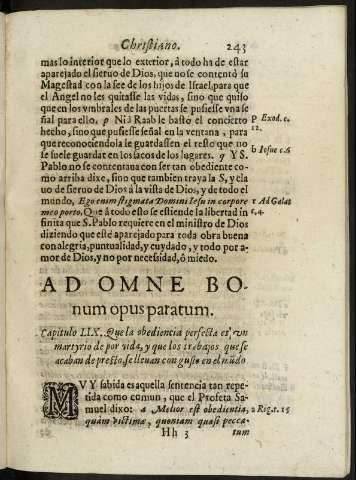 Christiano. 243
mas lo interior que lo exterior, à todo ha de estar
aparejado el sieruo de Dios, que no se contentò su
Magestad con la fee de los hijos de Israel, para que
el Angel no les quitasse las vidas, sino que quiso
que en los vmbrales de las puertas se pusiesse vna se
ñal para ello. p Ni à Raab le bastò el concierto
p Exod. c.
12.
hecho, sino que pusiesse señal en la ventana, para
que reconociendola le guardassen el resto que no
se suele guardar en los sacos de los lugares. q Y S.
b Iosue c. 6
Pablo no se contentaua con ser tan obediente co-
mo arriba dixe, sino que tambien traya la S, y cla
uo de sieruo de Dios à la vista de Dios, y de todo el
mundo, Ego enim stigmata Domini Iesu in corpore
r Ad Galat
meo porto. Que à todo esto se estiende la libertad in
c. 4.
finita que S. Pablo requiere en el ministro de Dios
diziendo que esté aparejado para toda obra buena
con alegria, puntualidad, y cuydado, y todo por a-
mor de Dios, y no por necesidad, ò miedo.
AD OMNE BO-
num opus paratum.
Capitulo LIX. Que la obediencia perfecta es vn
martyrio de por vida, y que los trabajos que se
acaban de presto, se lleuan con gusto en el mũdo
MVY sabida es aquella sentencia tan repe-
tida como comun, que el Profeta Sa-
muel dixo: a Melior est obedientia,
a Reg. 1. 15
quàm victima, quoniam quasi pecca-
Hh 3 tum